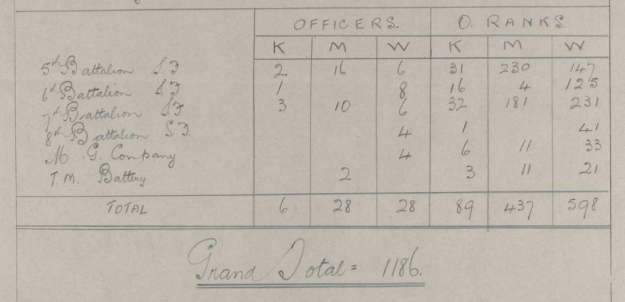 OFFICERS O. RANKS
K M W K M W
5th Battalion S.F 2 16 6 31 230 147
6th Battalion S.F 1 8 16 4 125
7th Battalion S.F 3 10 6 32 181 231
8th Battalion S.F. 4 1 41
M. G. Company 4 6 11 33
T.M. Battery 2 3 11 21
TOTAL 6 28 28 89 437 598
Grand Total = 1186.